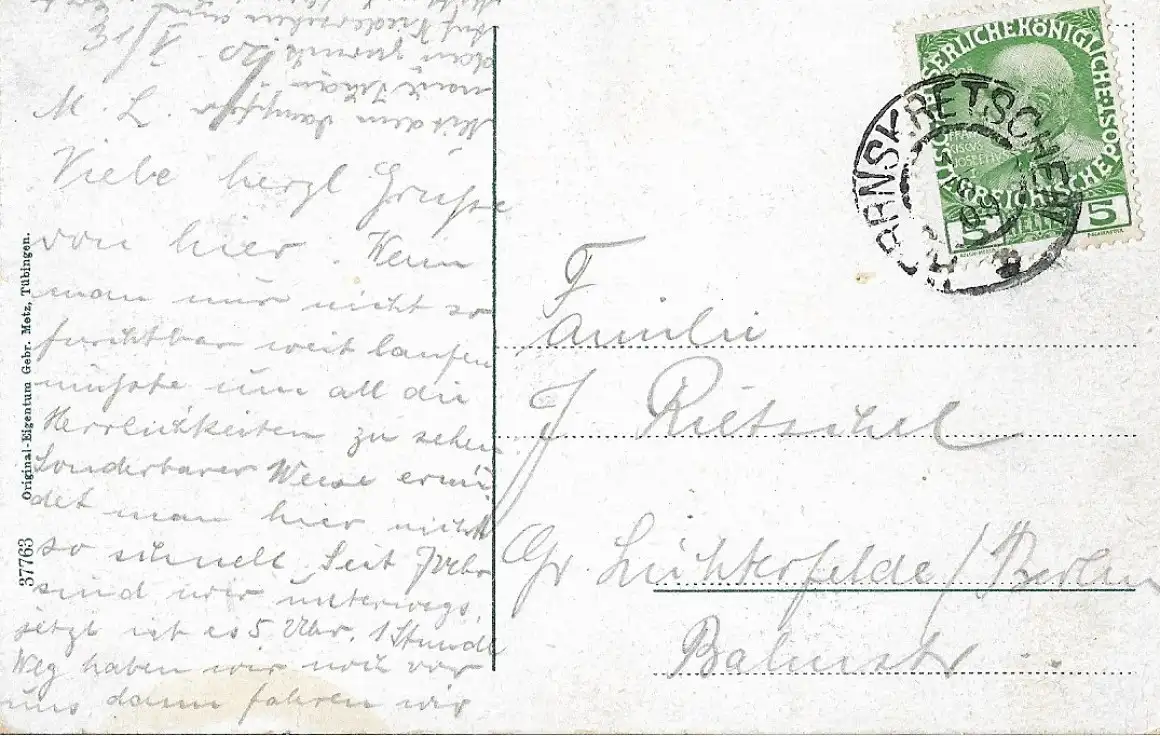 M. L. 31/V. 20.
Viele herzl Grüße
von hier. Wenn
man nur nicht so
furchtbar weit laufen
müsste um all die
Herrlichkeiten zu sehen.
Sonderbarer Weise ermü-
det man hier nicht
so schnell. Seit 7 Uhr
sind wir unterwegs,
jetzt ist es 5 Uhr. 1 Stunde
Weg haben wir noch vor
uns dann fahren wir
Mit dem Dampfer
nach
Auf Wiedersehen
Original-Eigentum Gebr. Metz, Tübingen.
37763
KAISERLICHE KÖNIGLICHE
ÖSTERREICHISCHE POST
5 HELLER 5
HERRNSKRETSCHEN
Familie
J Rietschel
Gr. Lichterfelde / Berlin
Bahnstr ..